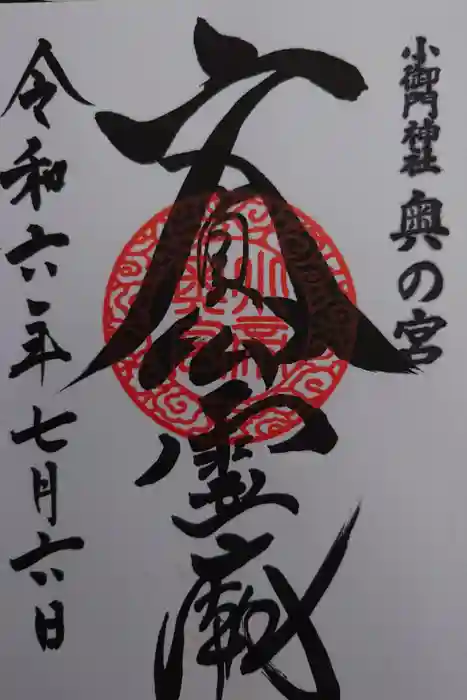 小御門神社 奥の宮
文貞公霊廟
令和六年七月六日